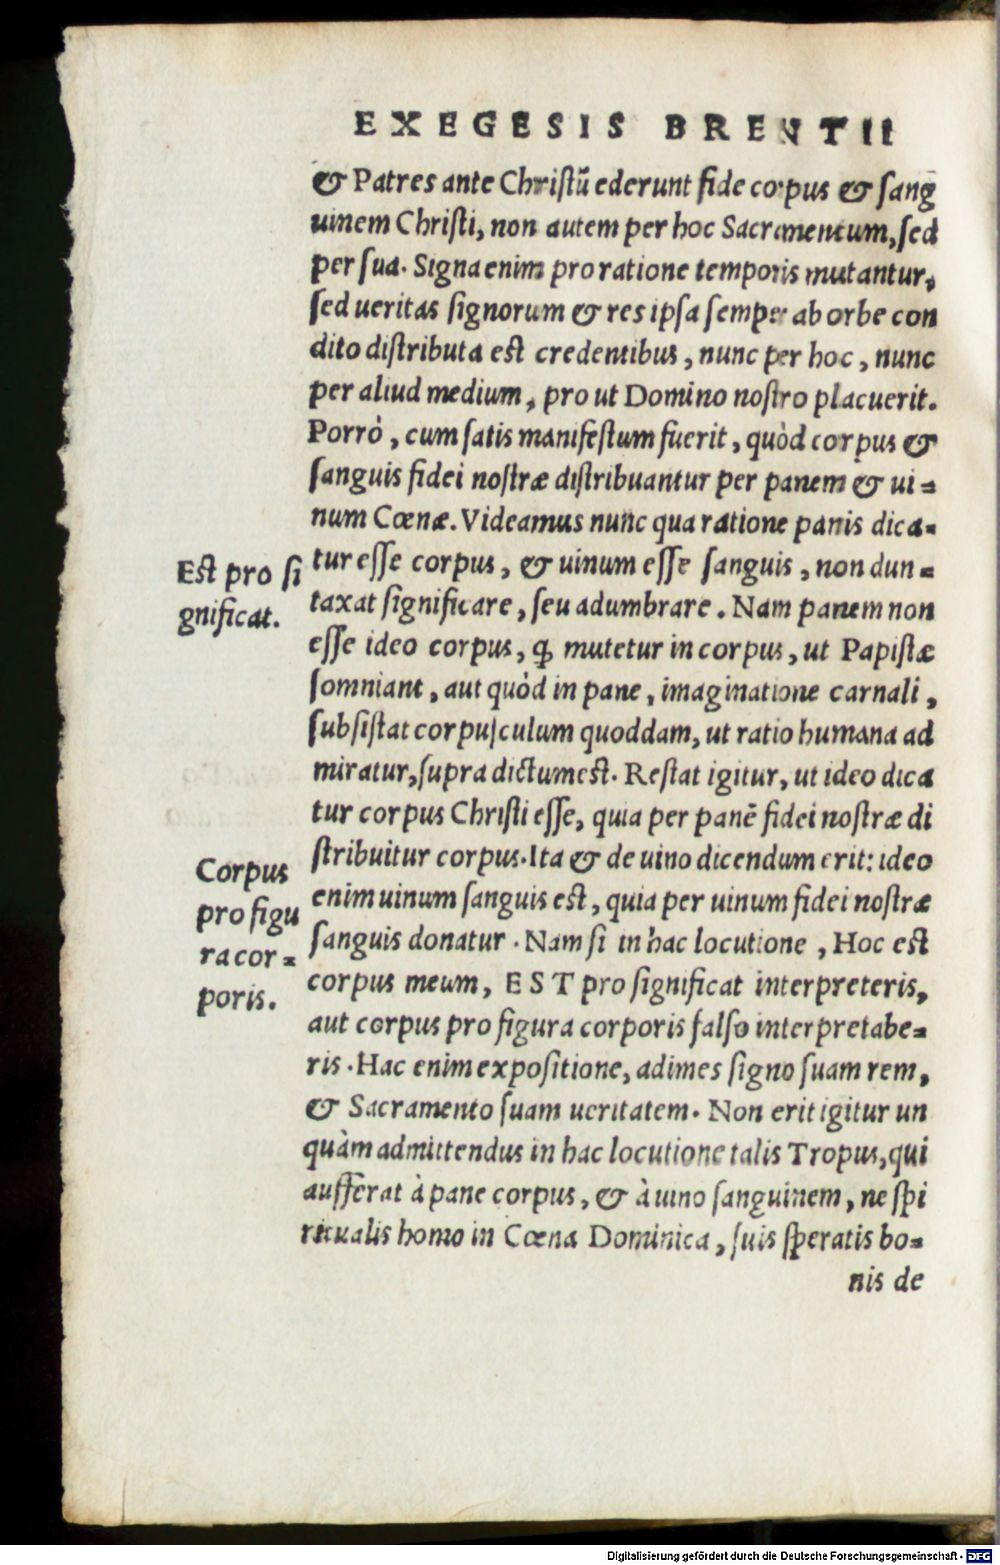 EXEGESIS BRENTII
& Patres ante Christũ ederunt fide corpus & sang
uinem Christi, non autem per hoc Sacramentum, sed
per sua. Signa enim pro ratione temporis mutantur,
sed ueritas signorum & res ipsa semper ab orbe con
dito distributa est credentibus, nunc per hoc, nunc
per aliud medium, pro ut Domino nostro placuerit.
Porrò, cum satis manifestum fuerit, quòd corpus &
sanguis fidei nostræ distribuantur per panem & ui=
num Cœnæ. Videamus nunc qua ratione panis dica=
Est pro si
gnificat.
tur esse corpus, & uinum esse sanguis, non dun=
taxat significare, seu adumbrare. Nam panem non
esse ideo corpus, ꝙ mutetur in corpus, ut Papistæ
somniant, aut quòd in pane, imaginatione carnali,
subsistat corpusculum quoddam, ut ratio humana ad
miratur, supra dictum est. Restat igitur, ut ideo dica
tur corpus Christi esse, quia per panẽ fidei nostræ di
stribuitur corpus. Ita & de uino dicendum erit: ideo
Corpus
pro figu
ra cor=
poris.
enim uinum sanguis est, quia per uinum fidei nostræ
sanguis donatur. Nam si in hac locutione, Hoc est
corpus meum, EST pro significat interpreteris,
aut corpus pro figura corporis falso interpretabe=
ris. Hac enim expositione, adimes signo suam rem,
& Sacramento suam ueritatem. Non erit igitur un
quàm admittendus in hac locutione talis Tropus, qui
aufferat à pane corpus, & à uino sanguinem, ne spi
ritualis homo in Cœna Dominica, suis speratis bo=
nis de
Digitalisierung gefördert durch die Deutsche Forschungsgemeinschaft - DFG